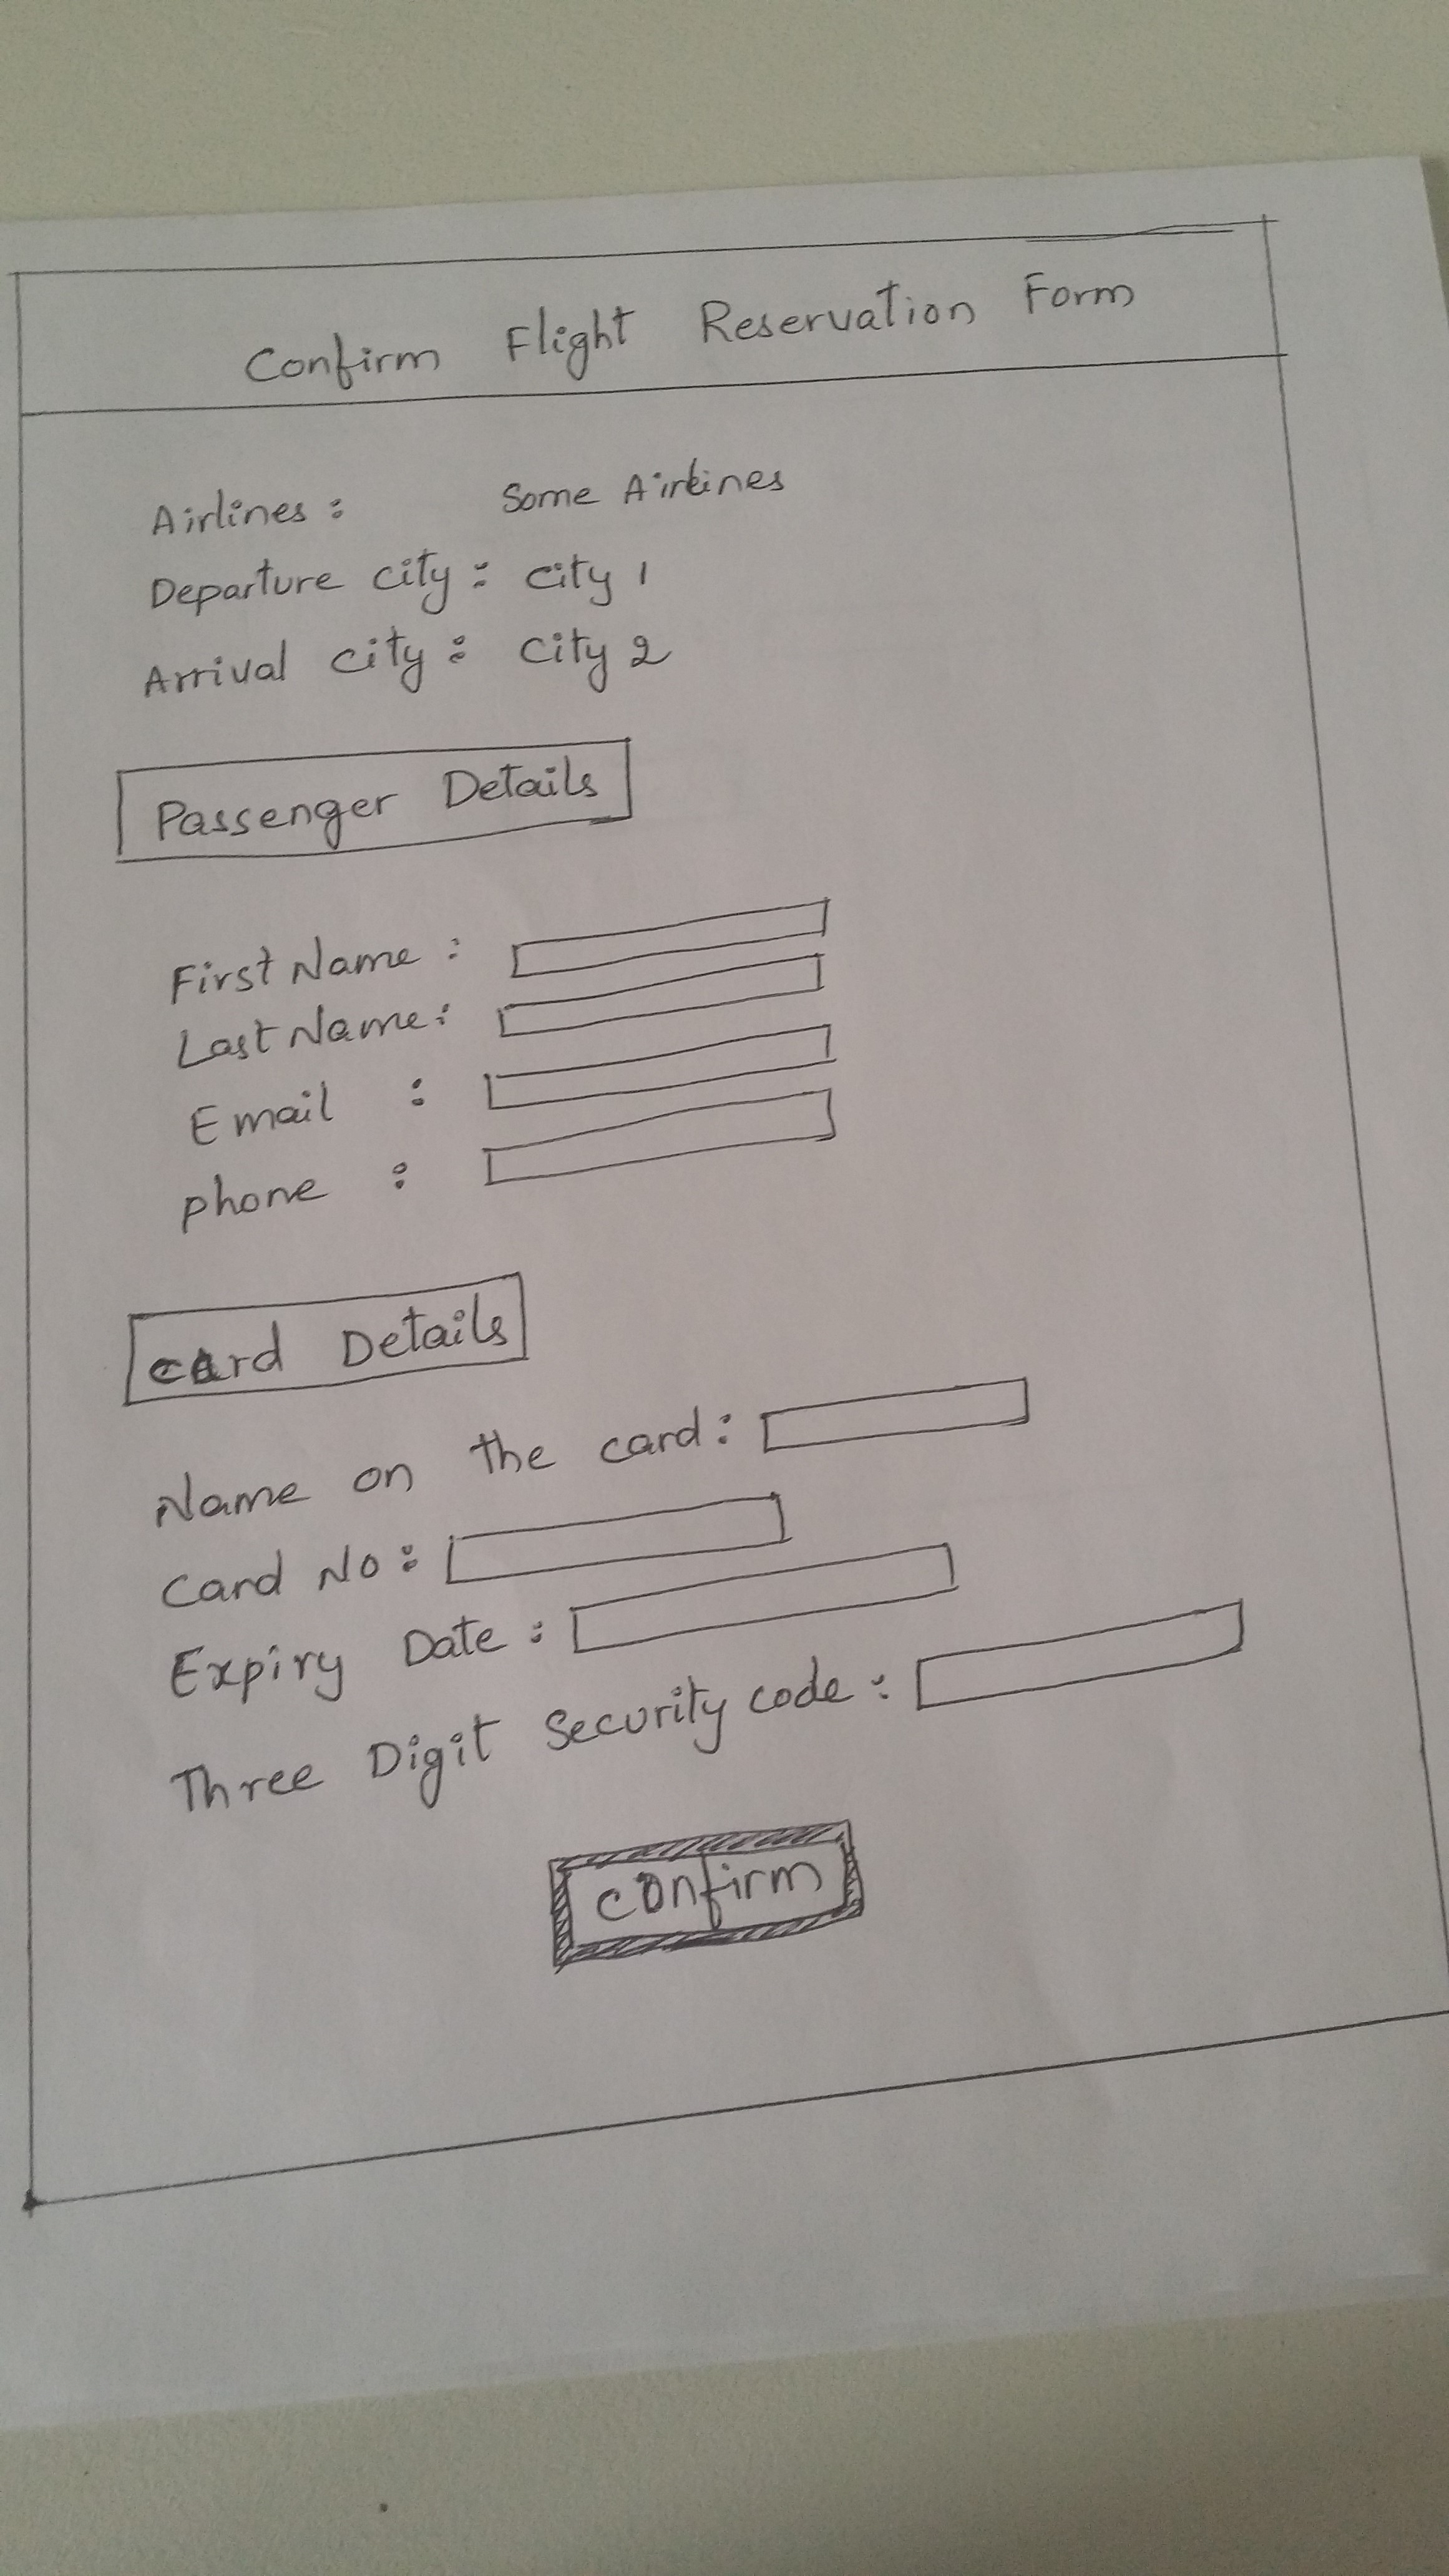 Confirm Flight Reservation Form
Airlines : Some Airlines
Departure city : city 1
Arrival city : city 2
Passenger Details
First Name :
Last Name :
Email :
phone :
card Details
Name on the card :
Card No :
Expiry Date :
Three Digit Security code :
confirm